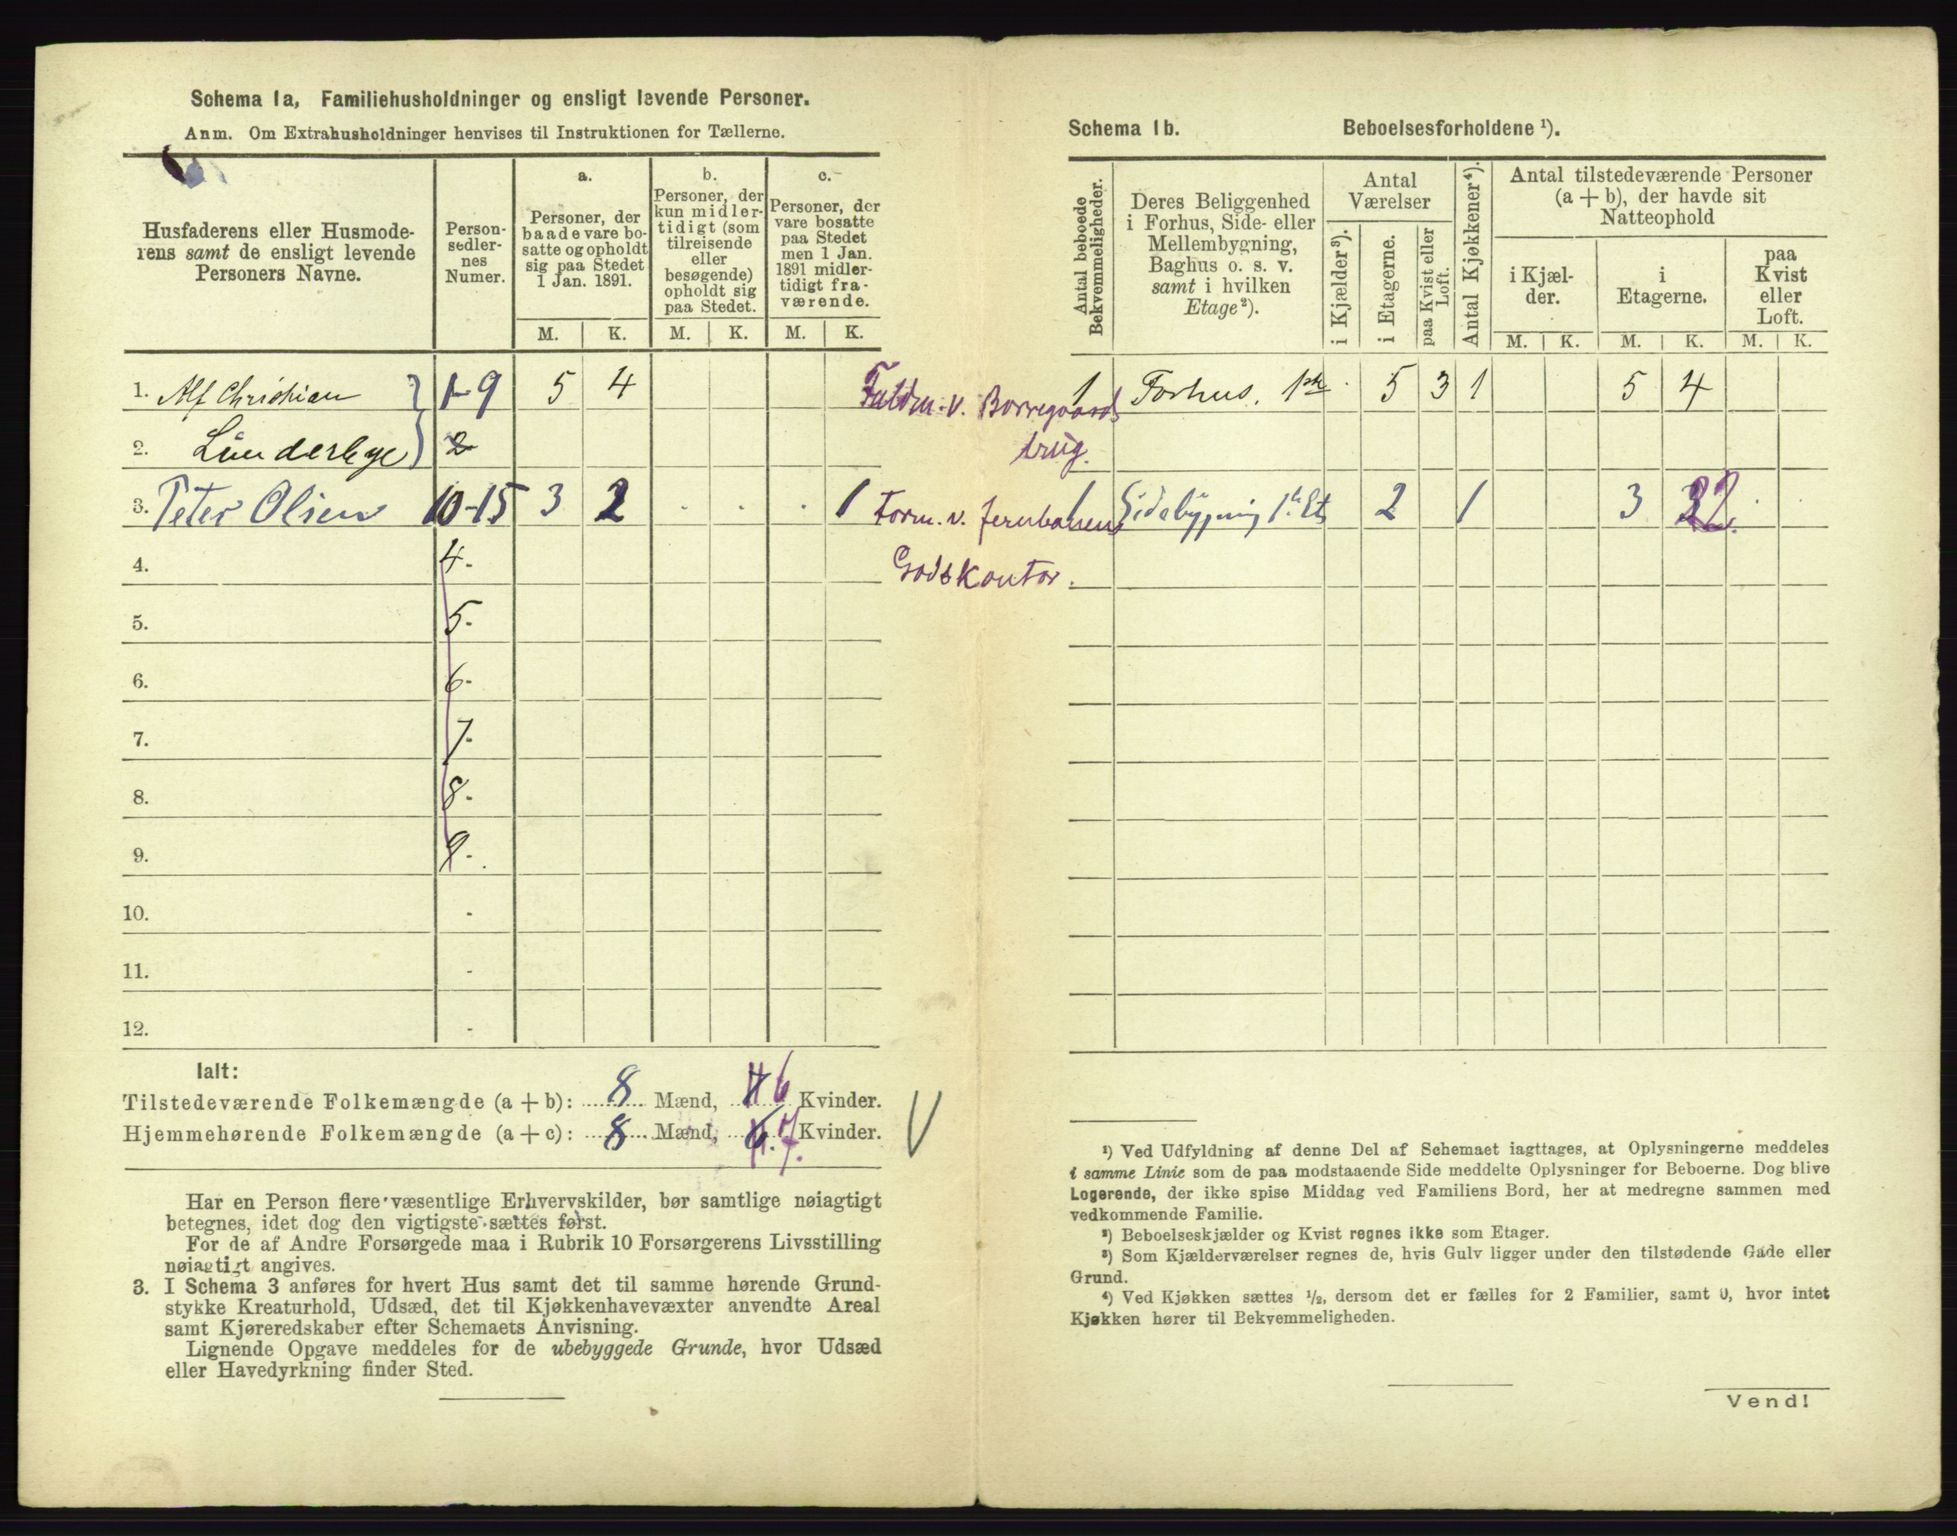 Schema 1a, Familiehusholdninger og ensligt levende Personer.
Anm. Om Extrahusholdninger henvises til Instruktionen for Tællerne.
Husfaderens eller Husmoderens samt de ensligt levende Personers Navne.
Personsedlernes Numer.
a. Personer, der baade vare bosatte og opholdt sig paa Stedet 1 Jan. 1891.
b. Personer, der kun midlertidigt (som tilreisende eller besøgende) opholdt sig paa Stedet.
c. Personer, der vare bosatte paa Stedet men 1 Jan. 1891 midlertidigt fraværende.
M. K. M. K. M. K.
1. Alf Christian 1-9 5 4
2. Lünderbye 2
3. Peter Olsen 10-15 3 2 . . . 1
4. 4.
5. 5.
6. 6.
7. 7.
8. 8.
9. 9.
10. -
11. -
12. -
Ialt:
Tilstedeværende Folkemængde (a + b): 8 Mænd, 6 Kvinder.
Hjemmehørende Folkemængde (a + c): 8 Mænd, 7. Kvinder.
Har en Person flere væsentlige Erhvervskilder, bør samtlige nøiagtigt
betegnes, idet dog den vigtigste sættes først.
For de af Andre Forsørgede maa i Rubrik 10 Forsørgerens Livsstilling
nøiagtigt angives.
3. I Schema 3 anføres for hvert Hus samt det til samme hørende Grund-
stykke Kreaturhold, Udsæd, det til Kjøkkenhavevæxter anvendte Areal
samt Kjøreredskaber efter Schemaets Anvisning.
Lignende Opgave meddeles for de ubebyggede Grunde, hvor Udsæd
eller Havedyrkning finder Sted.
Schema 1b. Beboelsesforholdene ¹).
Antal beboede Bekvemmeligheder.
Deres Beliggenhed i Forhus, Side- eller Mellembygning, Baghus o. s. v. samt i hvilken Etage²).
Antal Værelser
i Kjælder³).
i Etagerne.
paa Kvist eller Loft.
Antal Kjøkkener⁴).
Antal tilstedeværende Personer (a + b), der havde sit Natteophold
i Kjælder.
i Etagerne.
paa Kvist eller Loft.
M. K. M. K. M. K.
v. Borregaards
brug.
1 Forhus. 5 3 1 5 4
Form. v. Jernbanens
Godskontor.
1 Sidebygning 1ste Et. 2 1 3 2
¹) Ved Udfyldning af denne Del af Schemaet iagttages, at Oplysningerne meddeles
i samme Linie som de paa modstaaende Side meddelte Oplysninger for Beboerne. Dog blive
Logerende, der ikke spise Middag ved Familiens Bord, her at medregne sammen med
vedkommende Familie.
²) Beboelseskjælder og Kvist regnes ikke som Etager.
³) Som Kjælderværelser regnes de, hvis Gulv ligger under den tilstødende Gade eller
Grund.
⁴) Ved Kjøkken sættes ½, dersom det er fælles for 2 Familier, samt 0, hvor intet
Kjøkken hører til Bekvemmeligheden.
Vend!